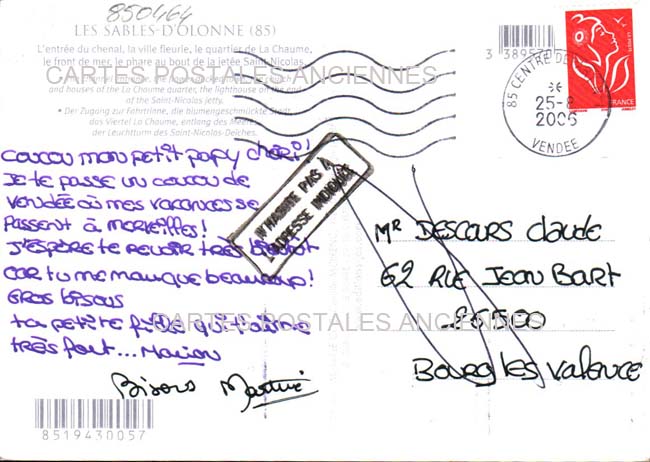 850464
LES SABLES-D'OLONNE (85)
L'entrée du chenal, la ville fleurie, le quartier de La Chaume,
le front de mer, le phare au bout de la jetée Saint-Nicolas.
CARTES POSTALES ANCIENNES
and houses of the La Chaume quarter, the lighthouse on the end
of the Saint-Nicolas jetty.
• Der Zugang zur Fahrrinne, die blumengeschmückte Stadt,
das Viertel La Chaume, entlang des Meeres,
der Leuchtturm des Saint-Nicolas-Deiches.
3 38957
85 CENTRE DE
25-8
2006
VENDEE
FRANCE
N'HABITE PAS À
L'ADRESSE INDIQUÉE
Coucou mon petit papy chéri!
Je te passe un coucou de
Vendée où mes vacances se
passent à merveilles!
J'espère te revoir très bientôt
car tu me manque beaucoup!
Gros bisous
ta petite fille qui t'aime
très fort... Marion
Bisous Martine
Mr DESCOURS Claude
62 RUE Jean Bart
26500
Bourg les Valence
CARTES POSTALES ANCIENNES
8519430057